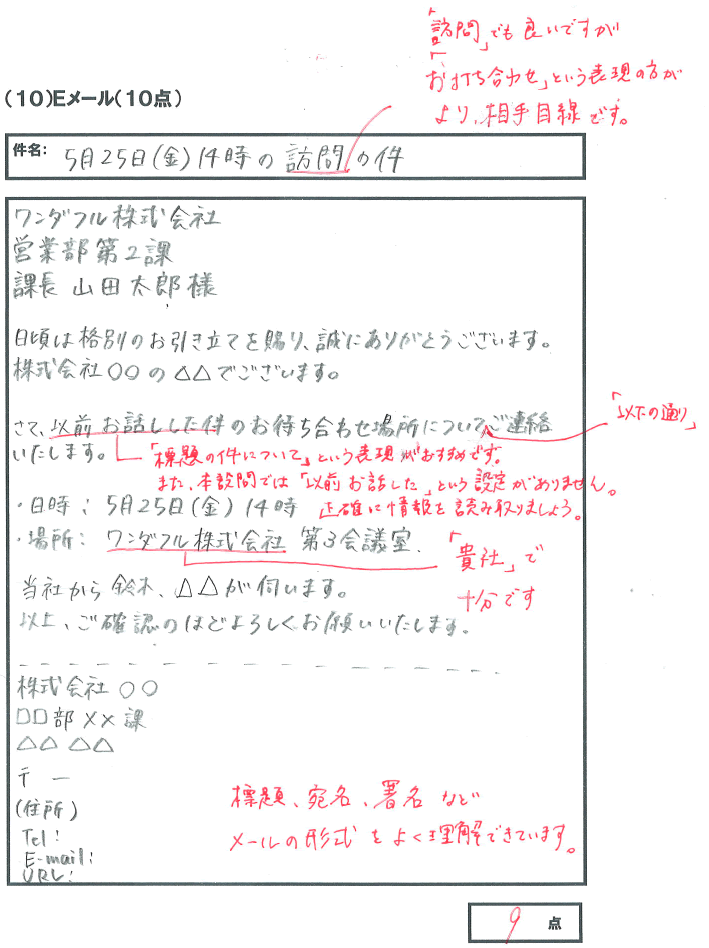 「訪問」でも良いですが
「お打ち合わせ」という表現の方が
より、相手目線です。
(10)Eメール(10点)
件名: 5月25日(金)14時の訪問の件
ワンダフル株式会社
営業部第2課
課長 山田太郎様
日頃は格別のお引き立てを賜り、誠にありがとうございます。
株式会社○○の△△でございます。
「以下の通り」
さて、以前お話しした件のお待ち合わせ場所についてご連絡
いたします。
「標題の件について」という表現がおすすめです。
また、本設問では「以前お話した」という設定がありません。
正確に情報を読み取りましょう。
・日時: 5月25日(金)14時
・場所: ワンダフル株式会社 第3会議室.
「貴社」で
十分です
当社から鈴木、△△が伺います。
以上、ご確認のほどよろしくお願いいたします。
株式会社○○
□□部××課
△△ △△
〒 ー
(住所)
Tel:
E-mail:
URL:
標題、宛名、署名など
メールの形式をよく理解できています。
9 点